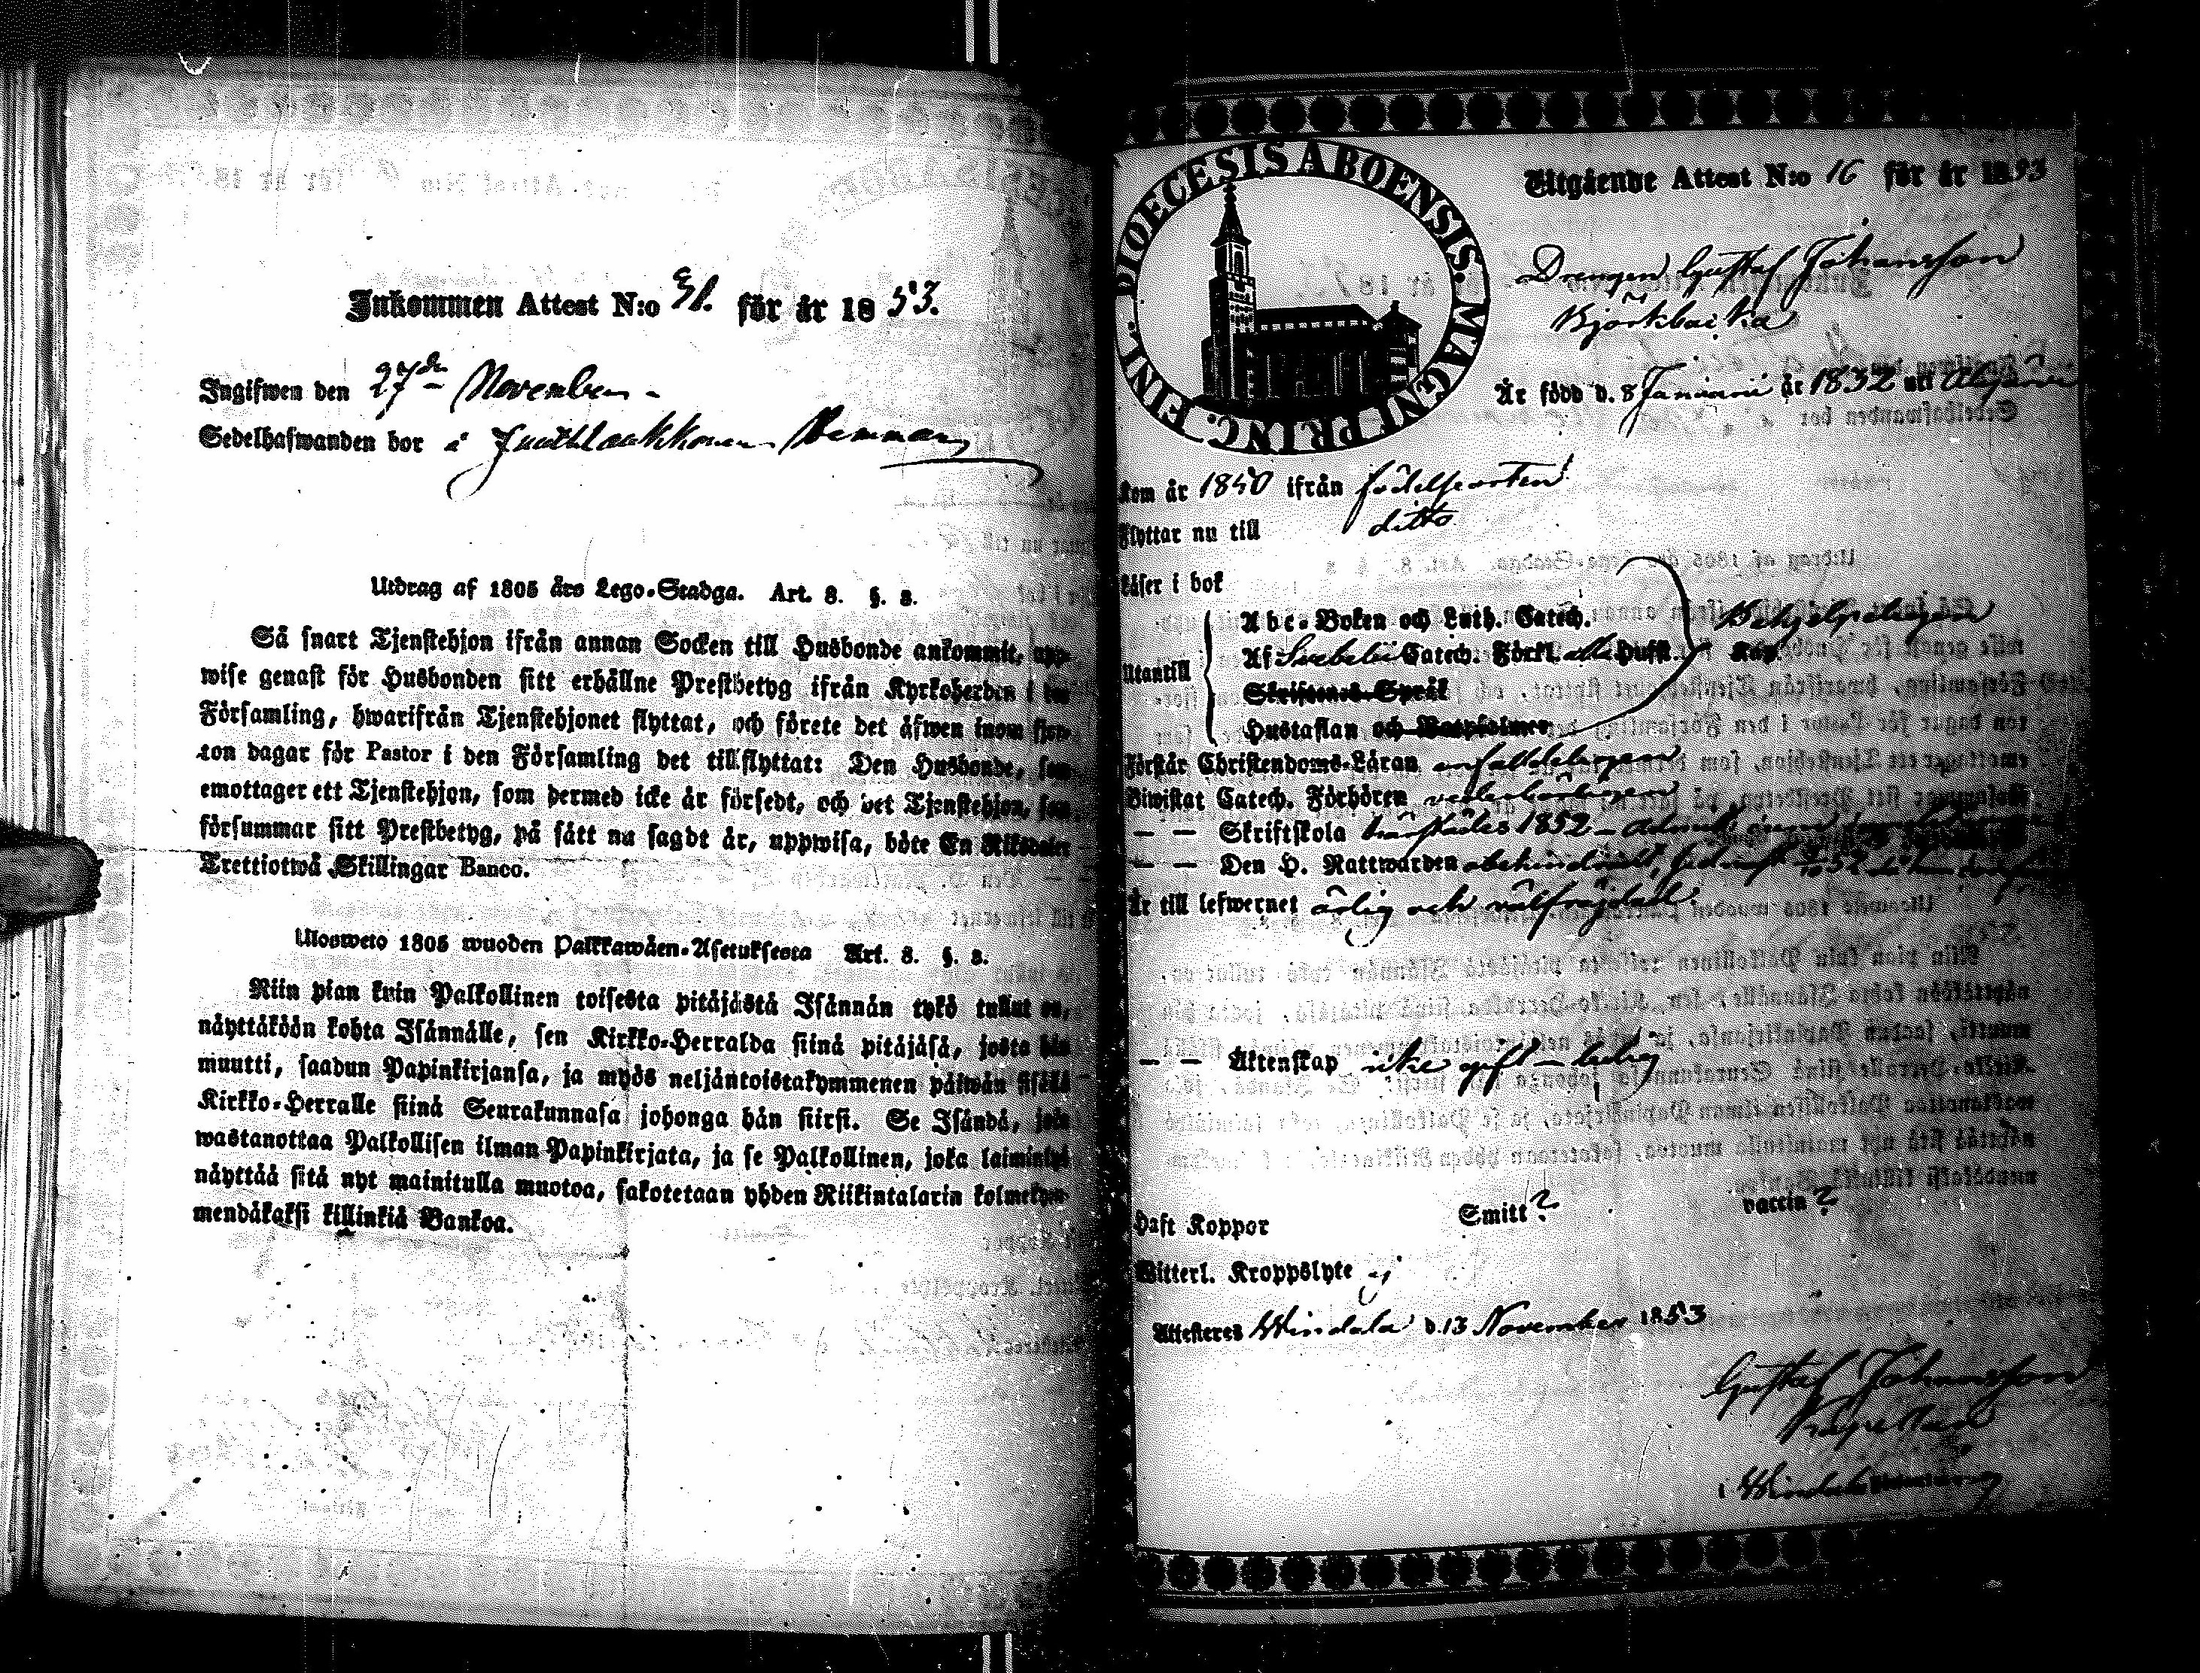 Inkommen Attest N:o 31. för år 1853.
Ingifwen den 27de November
Sedelhafwanden bor i
Utdrag af 1805 års Lego-Stadga. Art. 8. §. 2.
Så snart Tjenstehjon ifrån annan Socken till Husbonde ankommit, upp-
wise genast för Husbonden sitt erhållne Prestbetyg ifrån Kyrkoherden i
Församling, hwarifrån Tjenstehjonet flyttat, och förete det äfwen inom fjor-
ton dagar för Pastor i den Församling det tillflyttat: Den Husbonde, som
emottager ett Tjenstehjon, som dermed icke är försedt, och det Tjenstehjon, som
försummar sitt Prestbetyg, på sätt nu sagdt är, uppwisa, böte En Riksdaler
Trettiotwå Skillingar Banco.
Ulosweto 1805 wuoden Palkkawäen-Asetuksesta Art. 8. §. 2.
Niin pian kuin Palkollinen toisesta pitäjästä Isännän tykö tullut on,
näyttäköön kohta Isännälle, sen Kirkko-Herralda siinä pitäjäsä, josta hän
muutti, saadun Papinkirjansa, ja myös neljäntoistakymmenen päiwän sisällä
Kirkko-Herralle siinä Seurakunnasa johonga hän siirsi. Se Isändä, joka
wastanottaa Palkollisen ilman Papinkirjata, ja se Palkollinen, joka laiminlyö
näyttää sitä nyt mainitulla muotoa, sakotetaan yhden Riikintalarin kolmekym-
mendäkaksi killinkiä Bankoa.
DIOECESIS ABOENSIS. MAGNI PRINC. FINL.
Utgående Attest N:o 16 för år 1853
Drengen Gustaf Johansson
Björkbacka
Är född d. 8 Januarii år 1832 uti
Kom år 1850 ifrån födelseorten
Flyttar nu till ditto
Läser i bok
Abc-Boken och Luth. Catech.
Utantill Af Svebelii Catech. Förkl. alla Hufst.
Skriftenes Språk
Hustaflan och Botpsalmer
Förstår Christendoms-Läran enfaldeligen
Biwistat Catech. Förhören vederbörligen
— — Skriftskola härstädes 1852 –
— — Den H. Nattwarden obehindradt,
Är till lefwernet ärlig och välfräjdad.
— — Äktenskap icke gift – ledig
Haft Koppor Smitt? vaccin?
Witterl. Kroppslyte ej
Attesteres Hvindala d. 13 November 1853
Gustaf Johansson
Kapellan